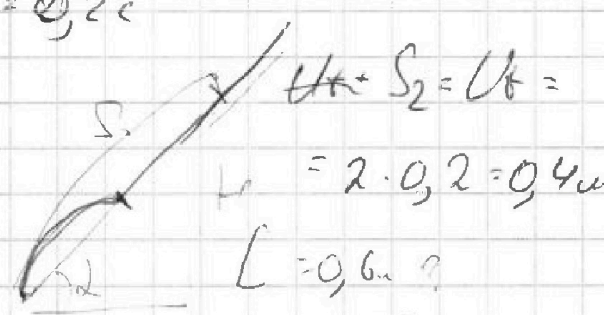 = 0,2c
S₂ = Ut =
S₁
= 2 · 0,2 = 0,4м
L = 0,6м ?
α